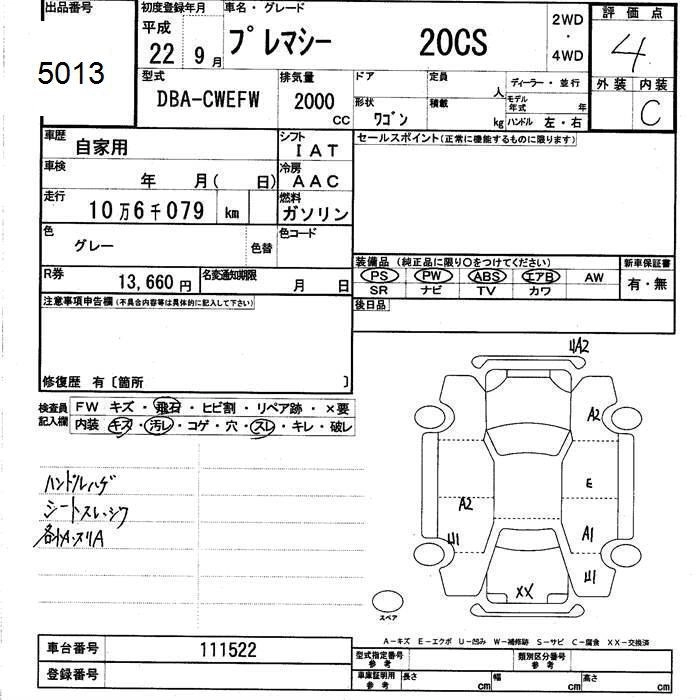 出品番号
5013
初度登録年月
平成
22 9月
車名・グレード
プレマシー 20CS
2WD
・
4WD
評価点
4
外装 内装
C
型式
DBA-CWEFW
排気量
2000
cc
ドア
定員
人
ディーラー・並行
形状
ワゴン
積載
kg
モデル
年式
年
ハンドル 左・右
車歴
自家用
シフト
IAT
セールスポイント(正常に機能するものに限ります)
車検
年 月( 日)
冷房
AAC
走行
10万6千079 km
燃料
ガソリン
色
グレー
色替
色コード
装備品(純正品に限り○をつけてください)
新車保証書
PS PW ABS エアB AW
SR ナビ TV カワ
有・無
R券
13,660円
名変通知期限
月 日
後日品
注意事項申告欄(不具合内容等は具体的に記入して下さい)
修復歴 有〔箇所 〕
検査員
記入欄
FW キズ・飛石・ヒビ割・リペア跡・×要
内装 キズ・汚レ・コゲ・穴・スレ・キレ・破レ
ハンドルハゲ
シートスレ・シワ
各付A・スリA
U A2
A2
E
A2
A1
U1
U1
XX
スペア
A-キズ E-エクボ U-凹み W-補修跡 S-サビ C-腐食 XX-交換済
車台番号
111522
登録番号
型式指定番号
参考
類別区分番号
参考
車庫証明用
参考
長さ
cm
幅
cm
高さ
cm